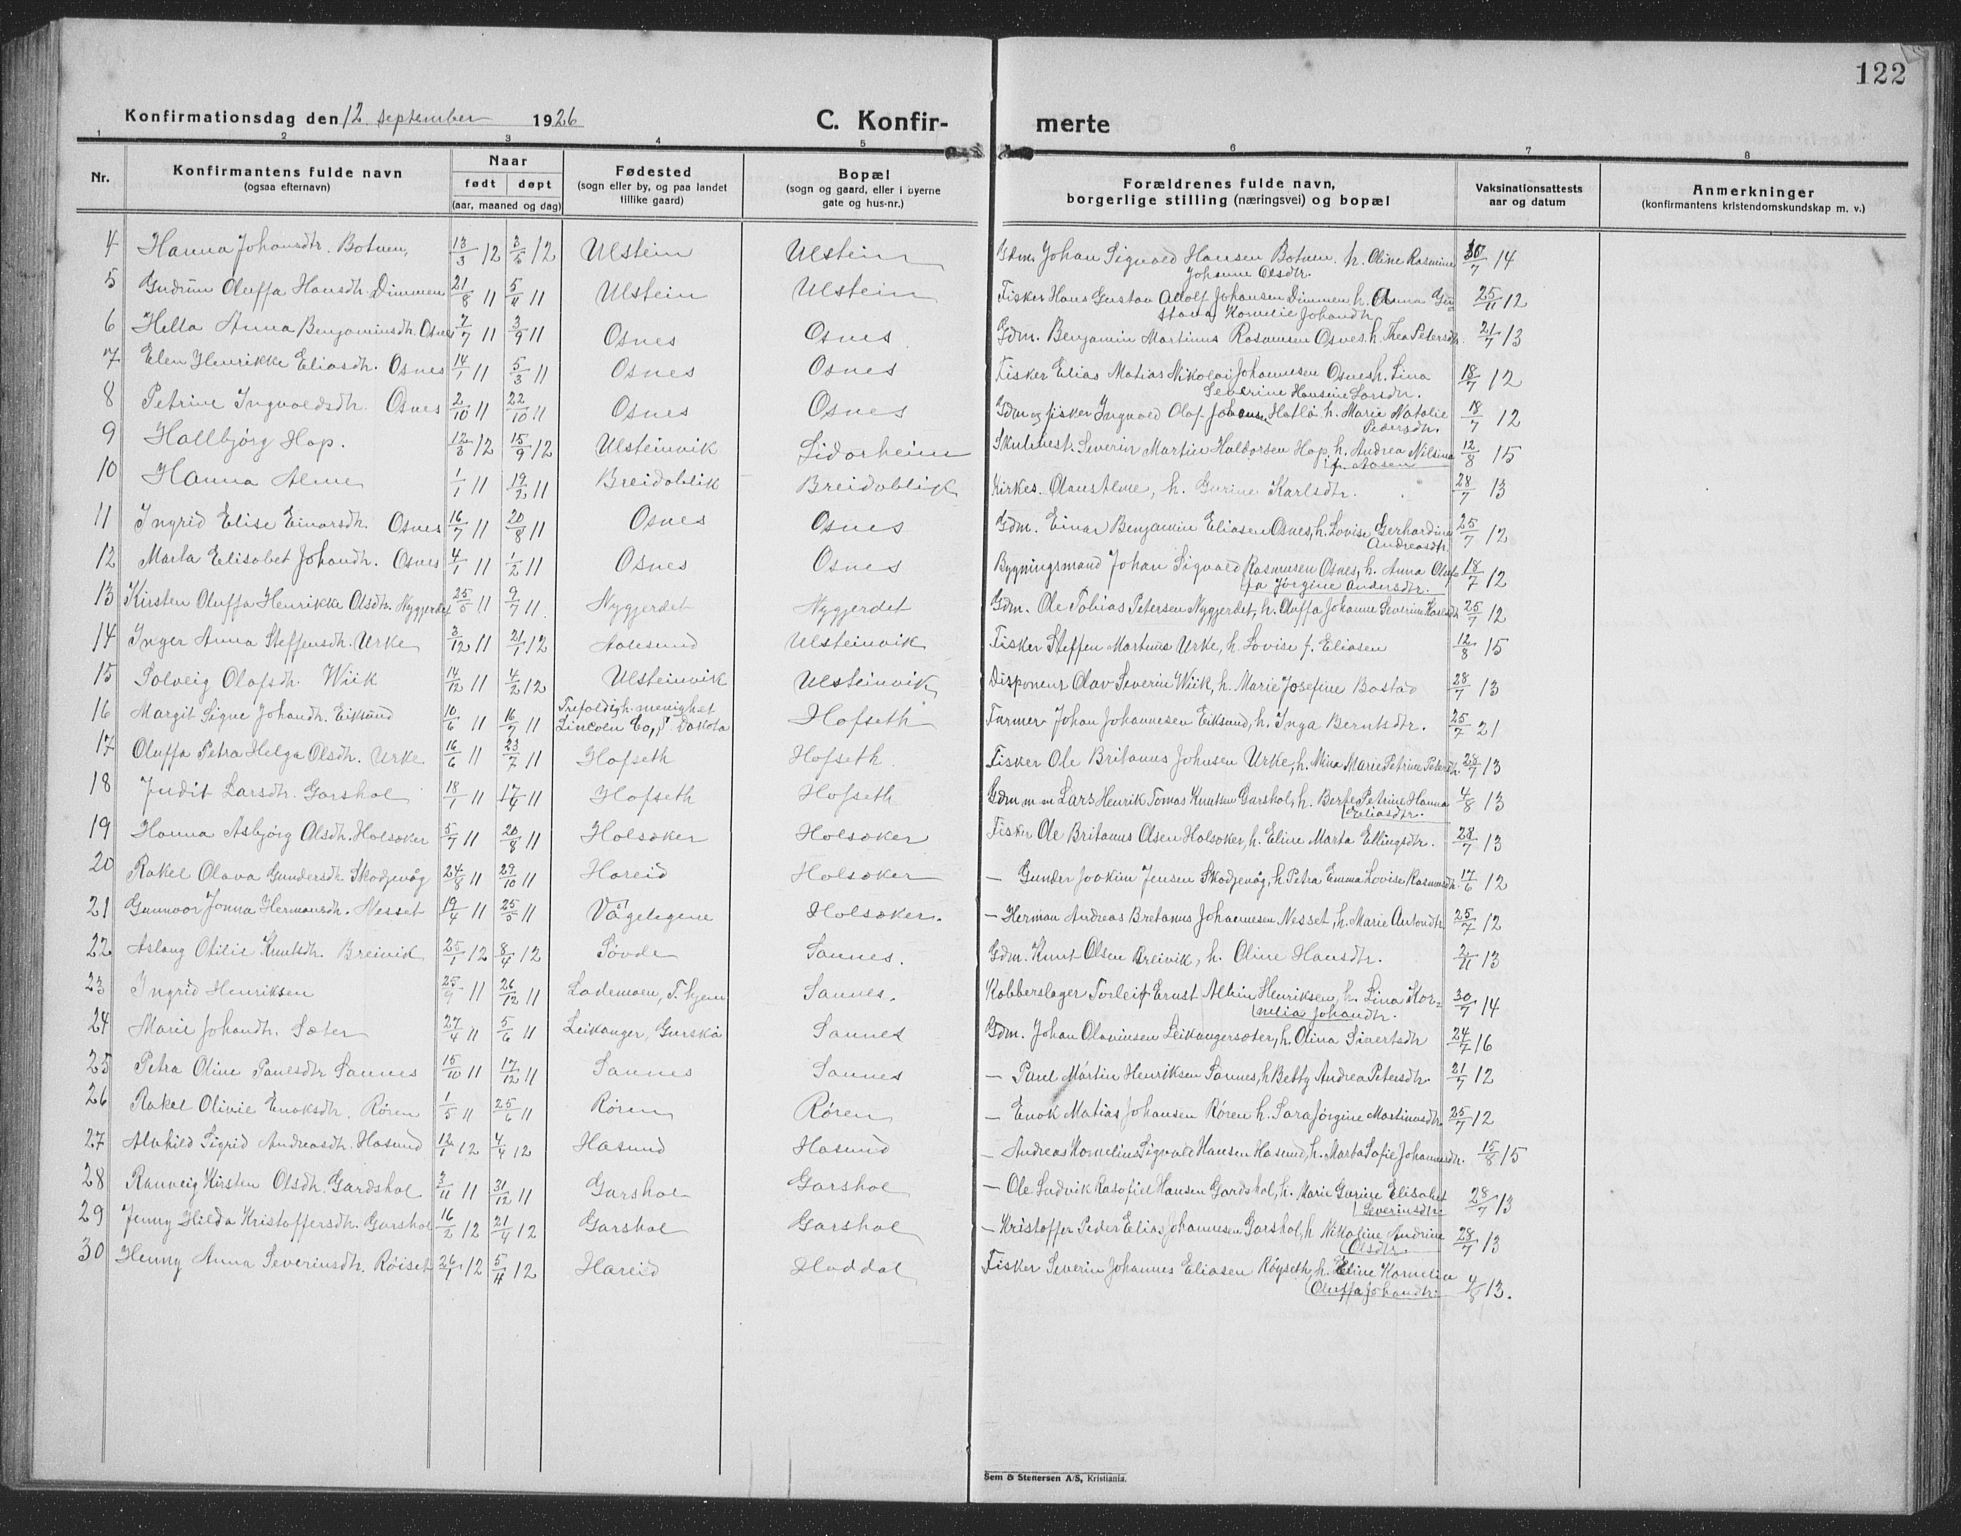 122
Konfirmationsdag den 12 september 1926 C. Konfir- merte
1 2 3 4 5 6 7 8
Nr. Konfirmantens fulde navn (ogsaa efternavn) Naar født døpt (aar, maaned og dag) Fødested (sogn eller by, og paa landet tillike gaard) Bopæl (sogn og gaard, eller i byerne gate og hus-nr.) Forældrenes fulde navn, borgerlige stilling (næringsvei) og bopæl Vaksinationsattests aar og datum Anmerkninger (konfirmantens kristendomskundskap m. v.)
4 Hanna Johansdtr. Botnen, 13/3 12 2/6 12 Ulstein Ulstein Gdm. Johan Sigvald Hansen Botnen h. Oline Rasmine 30/7 14
Johanne Olsdtr.
5 Gudrun Oluffa Hansdtr. Dimmen 21/8 11 5/11 11 Ulstein Ulstein Fisker Hans Gustav Adolf Johansen Dimmen h. Anna Gu- 25/11 12
stava Kornelie Johandtr.
6 Anna Benjaminsdtr. Osnes 7/7 11 3/9 11 Osnes Osnes Gdm. Benjamin Martinus Rasmusen Osnes h. Thea Petersdtr. 21/7 13
7 Elen Henrikke Eliasdtr. Osnes 14/1 11 5/3 11 Osnes Osnes Fisker Elias Matias Nikolai Johannesen Osnes h. Lina 18/7 12
Severine Hansine Larsdtr.
8 Petrine Ingvaldsdtr. Osnes 2/10 11 22/10 11 Osnes Osnes Gdm og fisker Ingvald Olaf Johansen Hatlø h. Marie Natalie 18/7 12
Pedersdtr.
9 Hallbjørg Hop. 12/3 12 15/9 12 Ulsteinvik Lidarheim Severin Martin Haldorsen Hop, h. Andrea Nilsina 12/8 15
f. Aasen
10 Hanna Alme 1/1 11 19/2 11 Breidablik Breidablik Kirkes. Olaus Alme, h. Gurine Karlsdtr. 28/7 13
11 Ingrid Elise Einarsdtr. Osnes 16/7 11 20/8 11 Osnes Osnes Gdm. Einar Benjamin Eliasen Osnes, h. Lovise Gerhardine 25/7 12
Andreasdtr.
12 Marta Elisabet Johandtr. Osnes 4/1 11 1/2 11 Osnes Osnes Bygningsmand Johan Sigvald Rasmusen Osnes, h. Anna Oluf- 18/7 12
fa Jørgine Andersdtr.
13 Kirsten Oluffa Henrikke Olsdtr. Nygjerdet 25/5 11 9/7 11 Nygjerdet Nygjerdet Gdm. Ole Tobias Petersen Nygjerdet, h. Oluffa Johanne Severine Karlsdtr 25/7 12
14 Inger Anna Steffensdtr. Urke 3/12 11 21/1 12 Aalesund Ulsteinvik Fisker Steffen Martinus Urke, h. Lovise f. Eliasen 12/8 15
15 Solveig Olafsdtr. Wiik 14/12 11 4/2 12 Ulsteinvik Ulsteinvik Disponent Olav Severin Wiik, h. Marie Josefine Bostad 28/7 13
16 Margit Signe Johandtr. Eiksund 10/6 11 16/7 11 Trefoldigh. menighet Hofseth Farmer Johan Johannesen Eiksund, h. Inga Berntsdtr. 25/7 21
Lincoln Co, S Dakota
17 Oluffa Petra Helga Olsdtr. Urke 16/6 11 23/7 11 Hofseth Hofseth. Fisker Ole Britanus Johnsen Urke, h. Mina Marie Petrine Petersdtr. 28/7 13
18 Judit Larsdtr. Garshol 18/1 11 17/4 11 Hofseth Hofseth Gdm Lars Henrik Tomas Knutsen Garshol, h. Berte Petrine Hanna 4/8 13
Eliasdtr.
19 Hanna Asbjørg Olsdtr. Holsøker 5/7 11 20/8 11 Holsøker Holsøker Fisker Ole Britanus Olsen Holsøker, h. Eline Marta Ellingsdtr. 28/7 13
20 Rakel Olava Gundersdtr. Skodjevåg 24/8 11 29/10 11 Hareid Holsøker — Gunder Joakim Jensen Skodjevåg, h Petra Emma Lovise Rasmusdtr. 17/6 12
21 Gunnvor Jonna Hermansdtr. Nesset 19/4 11 25/5 11 Vågelegene Holsøker. — Herman Andreas Bretanus Johannesen Nesset, h. Marie Antondtr 25/7 12
22 Aslaug Otilie Knutsdtr. Breivik 25/1 12 8/4 12 Søvde Sannes. Gdm. Knut Olsen Breivik, h. Oline Hansdtr. 2/11 13
23 Ingrid Henriksen 25/9 11 26/12 11 Lademoen, T. hjem Sannes. Kobberslager Torleif Ernst Albin Henriksen, h. Lina Kor- 30/7 14
nelia Johandtr.
24 Marie Johandtr. Sæter 27/4 11 5/6 11 Leikanger, Gurskø Sannes Gdm. Johan Olavinsen Leikangersæter, h. Olina Sivertsdtr 24/7 16
25 Petra Oline Paulsdtr Sannes 15/10 11 17/12 11 Sannes Sannes — Paul Martin Henriksen Sannes, h Betty Andrea Petersdtr. 21/7 12
26 Rakel Olivie Enoksdtr. Røren 1/5 11 25/6 11 Røren Røren — Enok Matias Johansen Røren h. Sara Jørgine Martinusdtr. 25/7 12
27 Alvhild Sigrid Andreasdtr. Hasund 12/1 12 4/4 12 Hasund Hasund — Andreas Kornelius Sigvald Hansen Hasund, h. Marta Sofie Johannesdtr. 15/8 15
28 Ranveig Kirsten Olsdtr. Gardshol 3/11 11 31/12 11 Garshol Garshol — Ole Ludvik Hansen Gardshol, h. Marie Gurine Elisabet 28/7 13
Severinsdtr.
29 Jenny Hilda Kristoffersdtr. Garshol 16/2 12 21/4 12 Garshol Garshol — Kristoffer Peder Elias Johannesen Garshol, h. Nikoline Andrine 28/7 13
Olsdtr.
30 Henny Anna Severinsdtr. Røiset 26/1 12 5/4 12 Hareid Haddal Fisker Severin Johannes Eliasen Røyseth, h. Eline Kornelia 4/8 13.
Oluffa Johandtr.
Sem & Stenersen A/S, Kristiania.